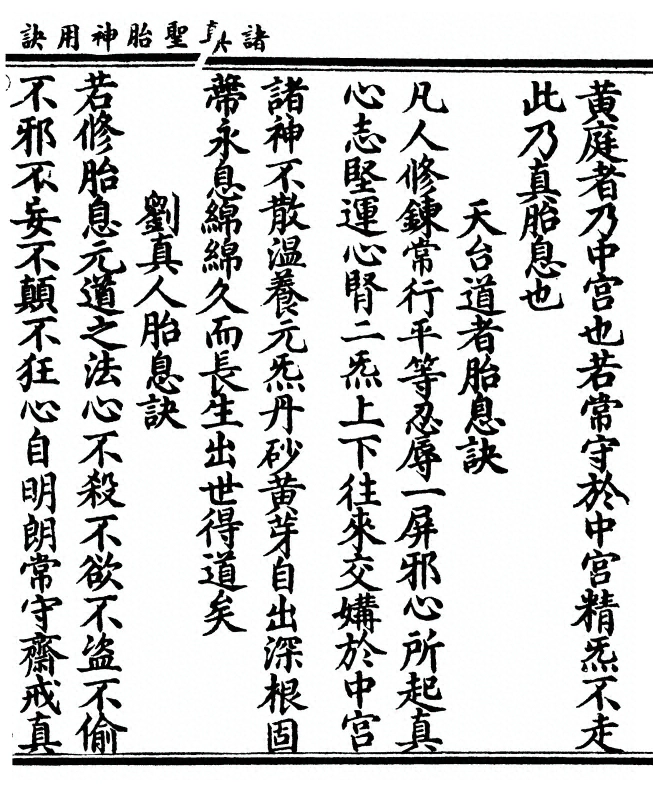 諸真聖胎神用訣
黃庭者乃中宮也若常守於中宮精炁不走
此乃真胎息也
天台道者胎息訣
凡人修鍊常行平等忍辱一屏邪心所起真
心志堅運心腎二炁上下往來交媾於中宮
諸神不散温養元炁丹砂黃芽自出深根固
蔕永息綿綿久而長生出世得道矣
劉真人胎息訣
若修胎息元道之法心不殺不欲不盜不偷
不邪不妄不顛不狂心自明朗常守齋戒真